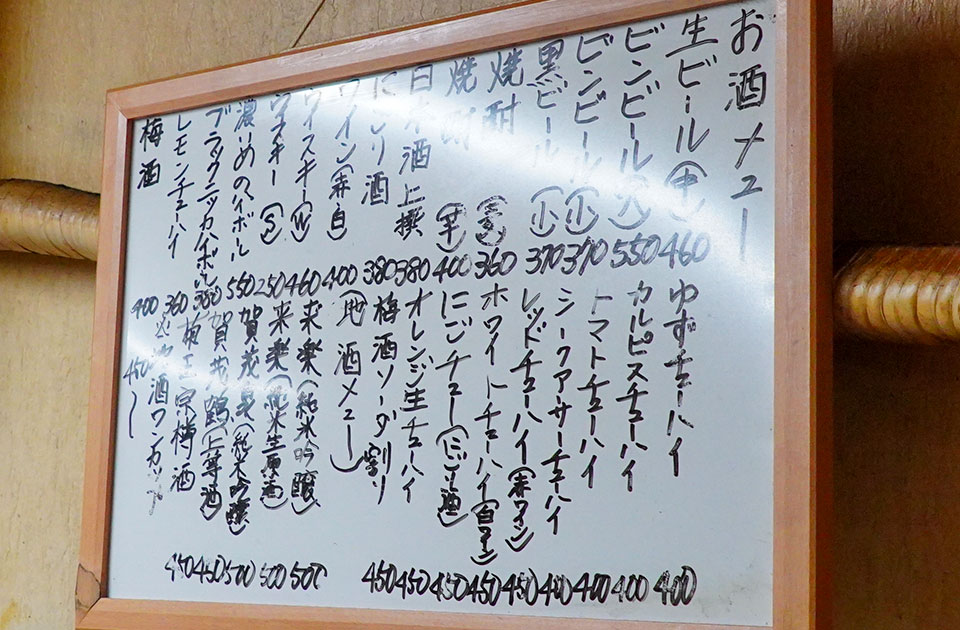 お酒メニュー
生ビール(中) 460
ビンビール(大) 550
ビンビール(小) 370
黒ビール(小) 370
焼酎(麦) 360
焼酎(芋) 400
日本酒上撰 380
にごり酒 380
ワイン(赤・白) 400
ウイスキー(W) 460
ウイスキー(S) 250
濃いめのハイボール 550
ブラックニッカハイボール 380
レモンチューハイ 360
梅酒 400
ゆずチューハイ 400
カルピスチューハイ 400
トマトチューハイ 400
シークァーサーチューハイ 400
レッドチューハイ(赤ワイン) 450
ホワイトチューハイ(白ワイン) 450
にごチュー(にごり酒) 450
オレンジ生チューハイ 450
梅酒ソーダ割り 450
(地酒メニュー)
来楽(純米吟醸) 500
来楽(純米生原酒) 500
賀茂泉(純米吟醸) 500
賀茂鶴(上等酒) 450
菊正宗樽酒 450
地酒ワンカップ 450〜